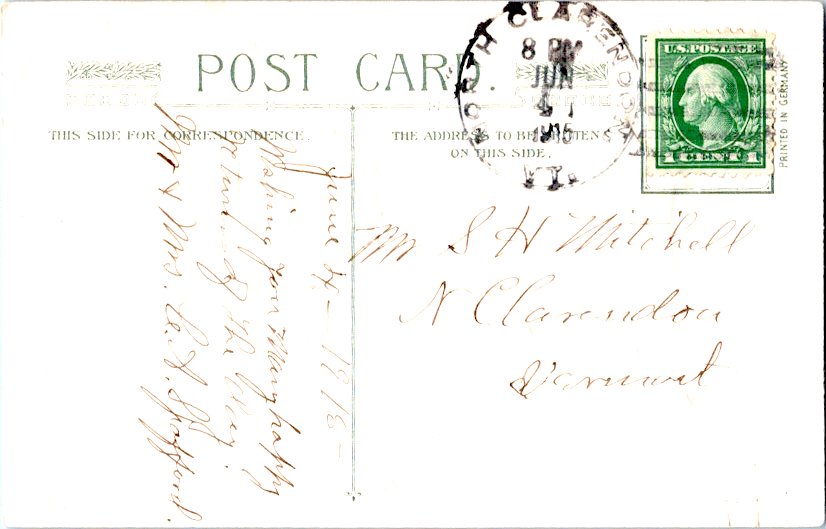 POST CARD.
THIS SIDE FOR CORRESPONDENCE.
THE ADDRESS TO BE WRITTEN
ON THIS SIDE.
NORTH CLARENDON
8 PM
JUN
4
1915
VT.
U.S. POSTAGE
1 CENT 1
PRINTED IN GERMANY
June 4 - 1915 -
Wishing you many happy
returns of the day.
Mr & Mrs. Spafford.
Mr S H Mitchell
N Clarendon
Vermont